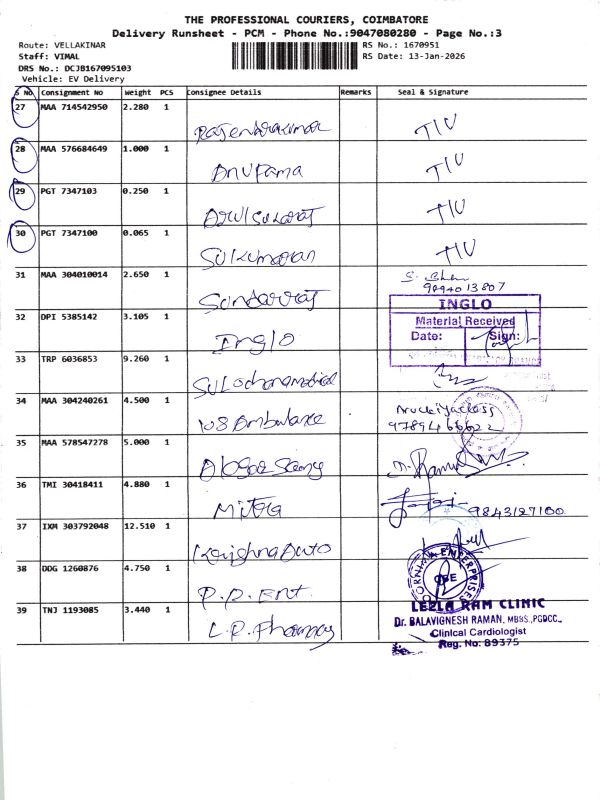 THE PROFESSIONAL COURIERS, COIMBATORE
Delivery Runsheet - PCM - Phone No.:9047080280 - Page No.:3
Route: VELLAKINAR
RS No.: 1670951
Staff: VIMAL
RS Date: 13-Jan-2026
DRS No.: DCJB167095103
Vehicle: EV Delivery
S No. Consignment No Weight PCS Consignee Details Remarks Seal & Signature
27 MAA 714542950 2.280 1
Rajendrakumar TIU
28 MAA 576684649 1.000 1
Anupama TIU
29 PGT 7347103 0.250 1
TIU
30 PGT 7347100 0.065 1
Sukumaran TIU
31 MAA 304010014 2.650 1
Sundarraj 9894013807
32 DPI 5385142 3.105 1
Inglo
INGLO
Material Received
Date: Sign:
33 TRP 6036853 9.260 1
Sulochanamedical
34 MAA 304240261 4.500 1
108 Ambulance
9789466622
35 MAA 578547278 5.000 1
36 TMI 30418411 4.880 1
Mitra 9843127100
37 IXM 303792048 12.510 1
Krishna Auto
38 DDG 1260876 4.750 1
P.P. Ent.
ENTERPRISES
CBE
39 TNJ 1193085 3.440 1
L.R. Pharmacy
LEELA RAM CLINIC
Dr. BALAVIGNESH RAMAN, MBBS.,PGDCC.,
Clinical Cardiologist
Reg. No: 89375